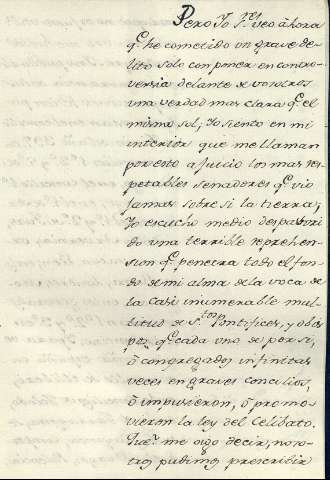 Pero Yo S.res veo ahora
q.e he cometido un grave de-
lito solo con poner en contro-
versia delante de vosotros
una verdad mas clara q.e el
mismo sol; Yo siento en mi
interior que me llaman
por esto a juicio los mas res-
petables senadores q.e vio
jamas sobre si la tierra;
Yo escucho medio despavori-
do una terrible reprehen-
sion q.e penetra todo el fon-
do de mi alma de la voca de
la casi inumerable mul-
titud de S.tos Pontifices, y obis-
pos, q.e cada uno de por si,
ó congregados infinitas
veces en graves concilios,
ó impusieron, ó promo-
vieron la ley del Celibato.
me oigo decir, noso-
tros pudimos prescribir